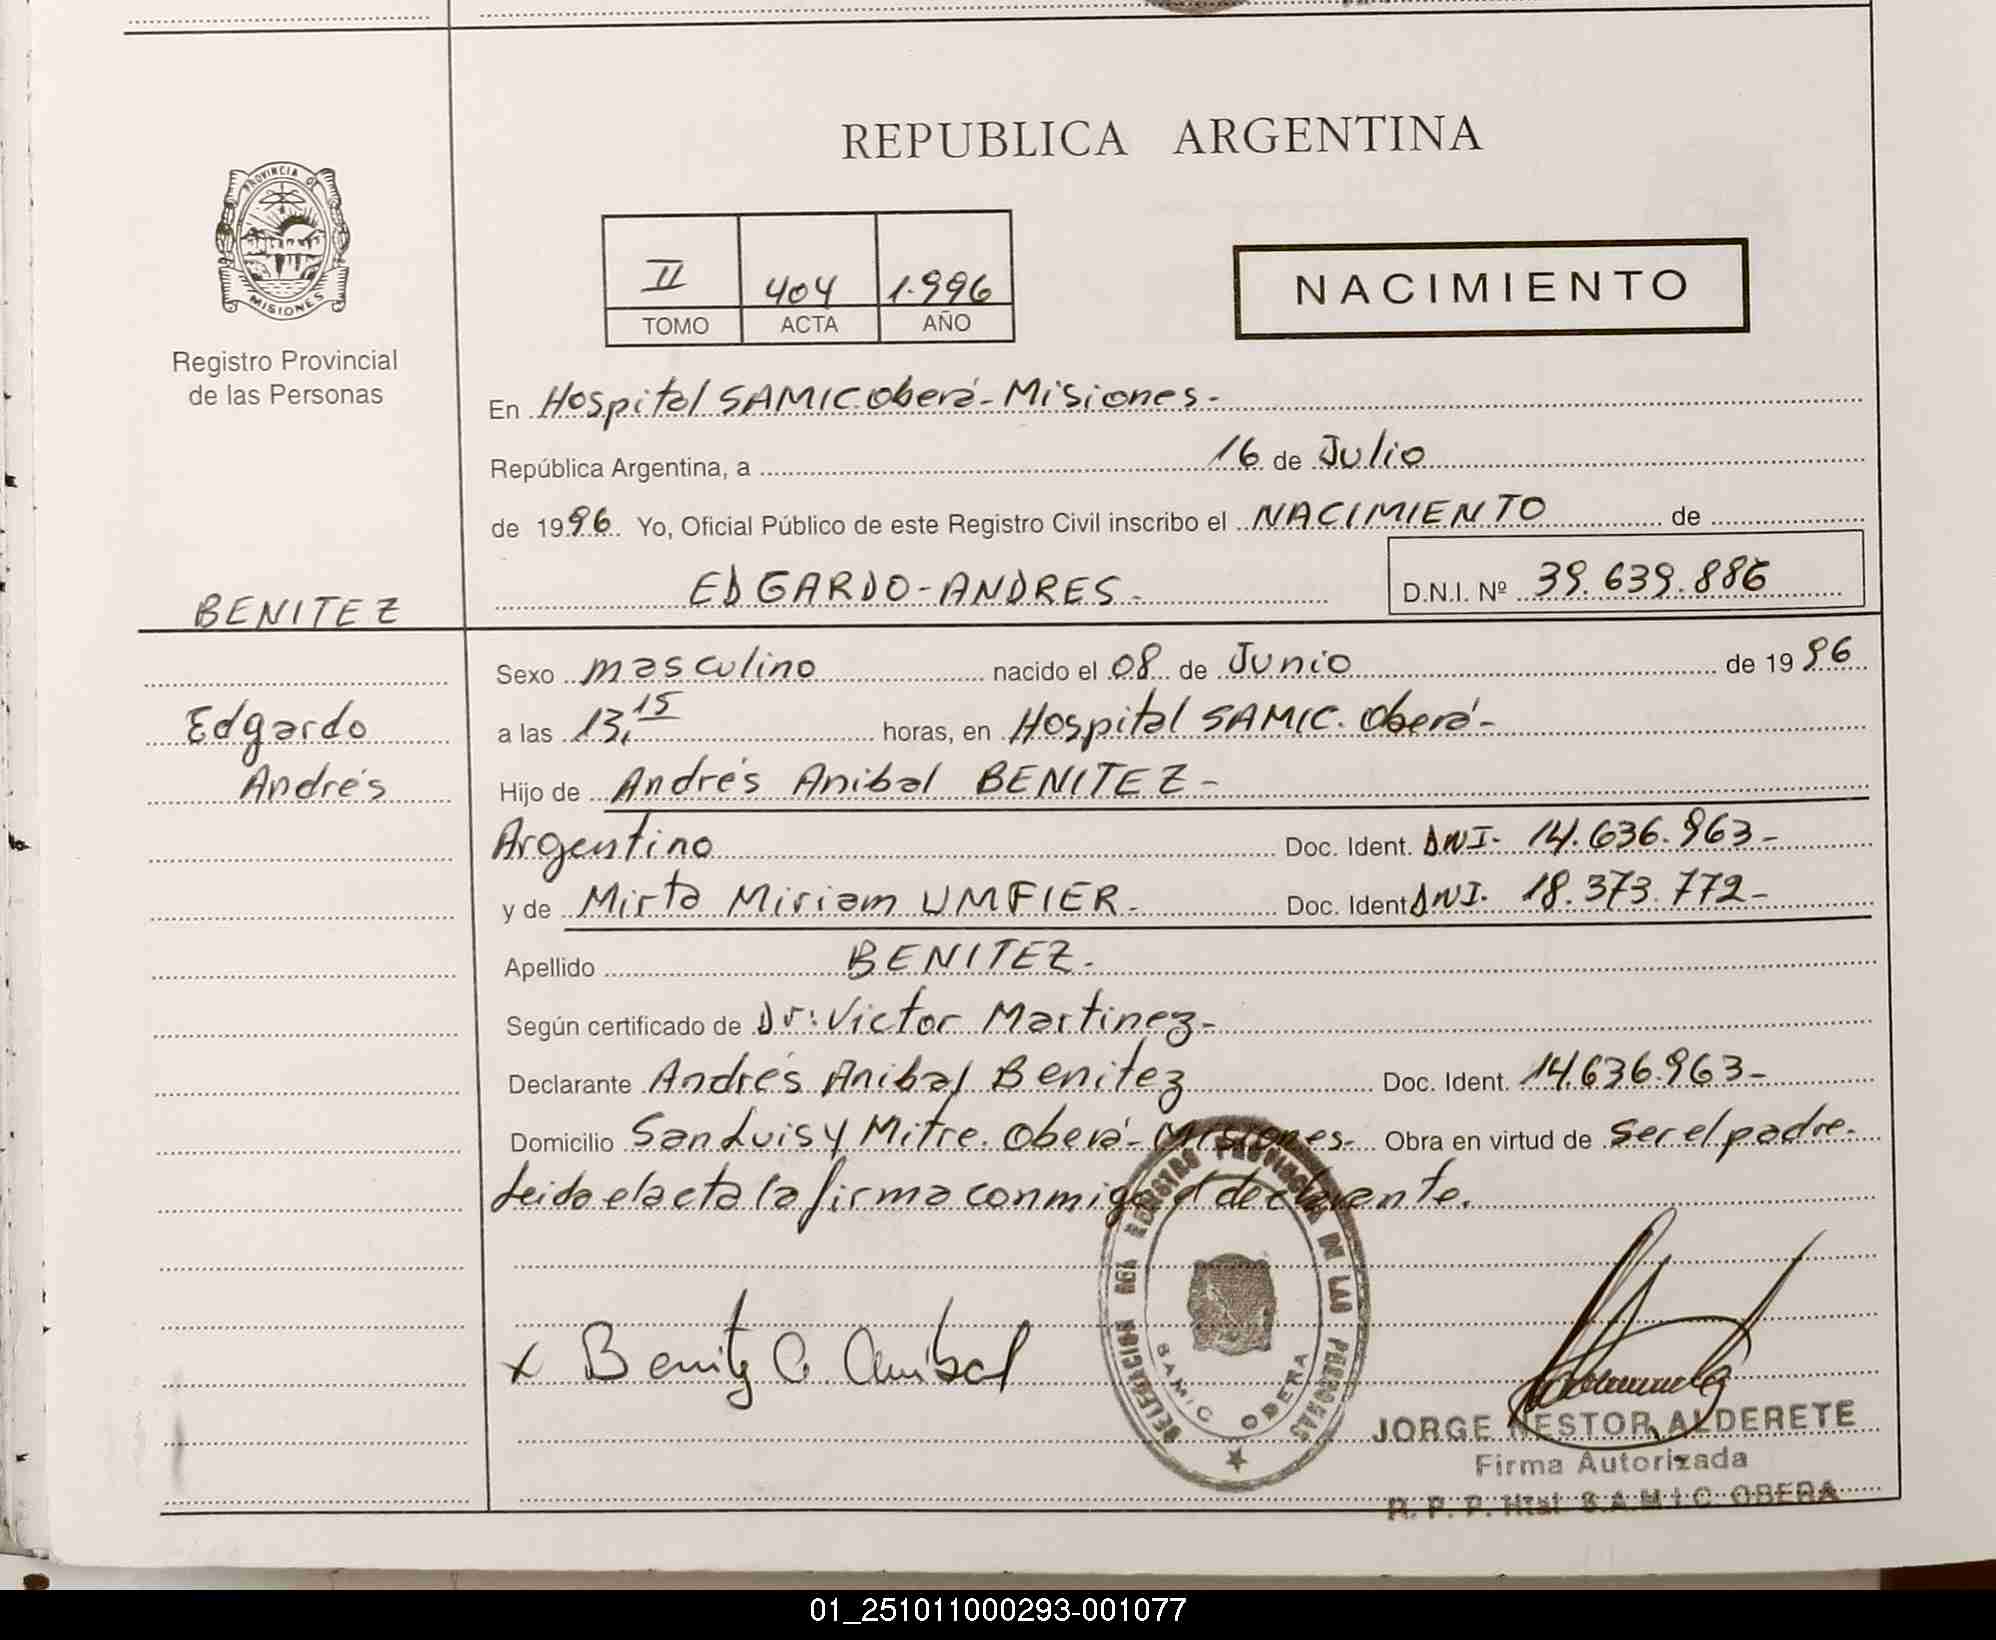 REPUBLICA ARGENTINA
PROVINCIA DE
MISIONES
Registro Provincial
de las Personas
II 404 1.996
TOMO ACTA AÑO
NACIMIENTO
En Hospital SAMIC. Oberá - Misiones -
República Argentina, a 16 de Julio
de 1996. Yo, Oficial Público de este Registro Civil inscribo el NACIMIENTO de
BENITEZ
EDGARDO - ANDRES - D.N.I. Nº 39.639.886
Sexo masculino nacido el 08 de Junio de 1996
Edgardo
Andrés
a las 13,15 horas, en Hospital SAMIC. Oberá -
Hijo de Andrés Anibal BENITEZ -
Argentino Doc. Ident. DNI - 14.636.963 -
y de Mirta Miriam UMFIER - Doc. Ident DNI - 18.373.772 -
Apellido BENITEZ -
Según certificado de Dr: Victor Martinez -
Declarante Andrés Anibal Benitez Doc. Ident. 14.636.963 -
Domicilio San Luis y Mitre. Oberá - Misiones - Obra en virtud de ser el padre -
Leida el acta la firma conmigo el declarante.
x Benitz A. Anibal
DELEGACION DEL REGISTRO PROVINCIAL DE LAS PERSONAS
SAMIC OBERA
JORGE NESTOR ALDERETE
Firma Autorizada
R. P. P. Htal. S.A.M.I.C. OBERA
01_251011000293-001077